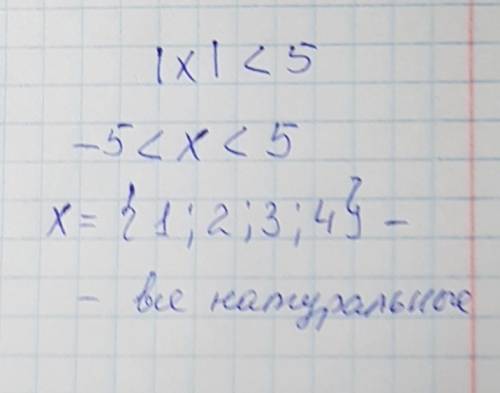 |x| < 5
-5 < x < 5
x = {1; 2; 3; 4} -
- все натуральные